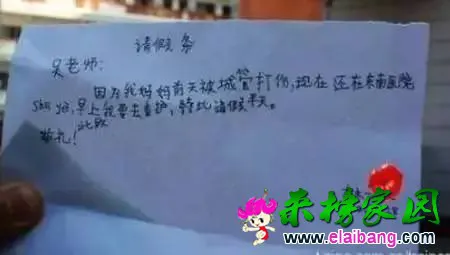 请假条
吴老师:
因为我妈妈前天被城管打伤,现在还在东南医院
早上我要去看护,特此请假半天。
此致
敬礼!
莱榜家园
www.elaibang.com